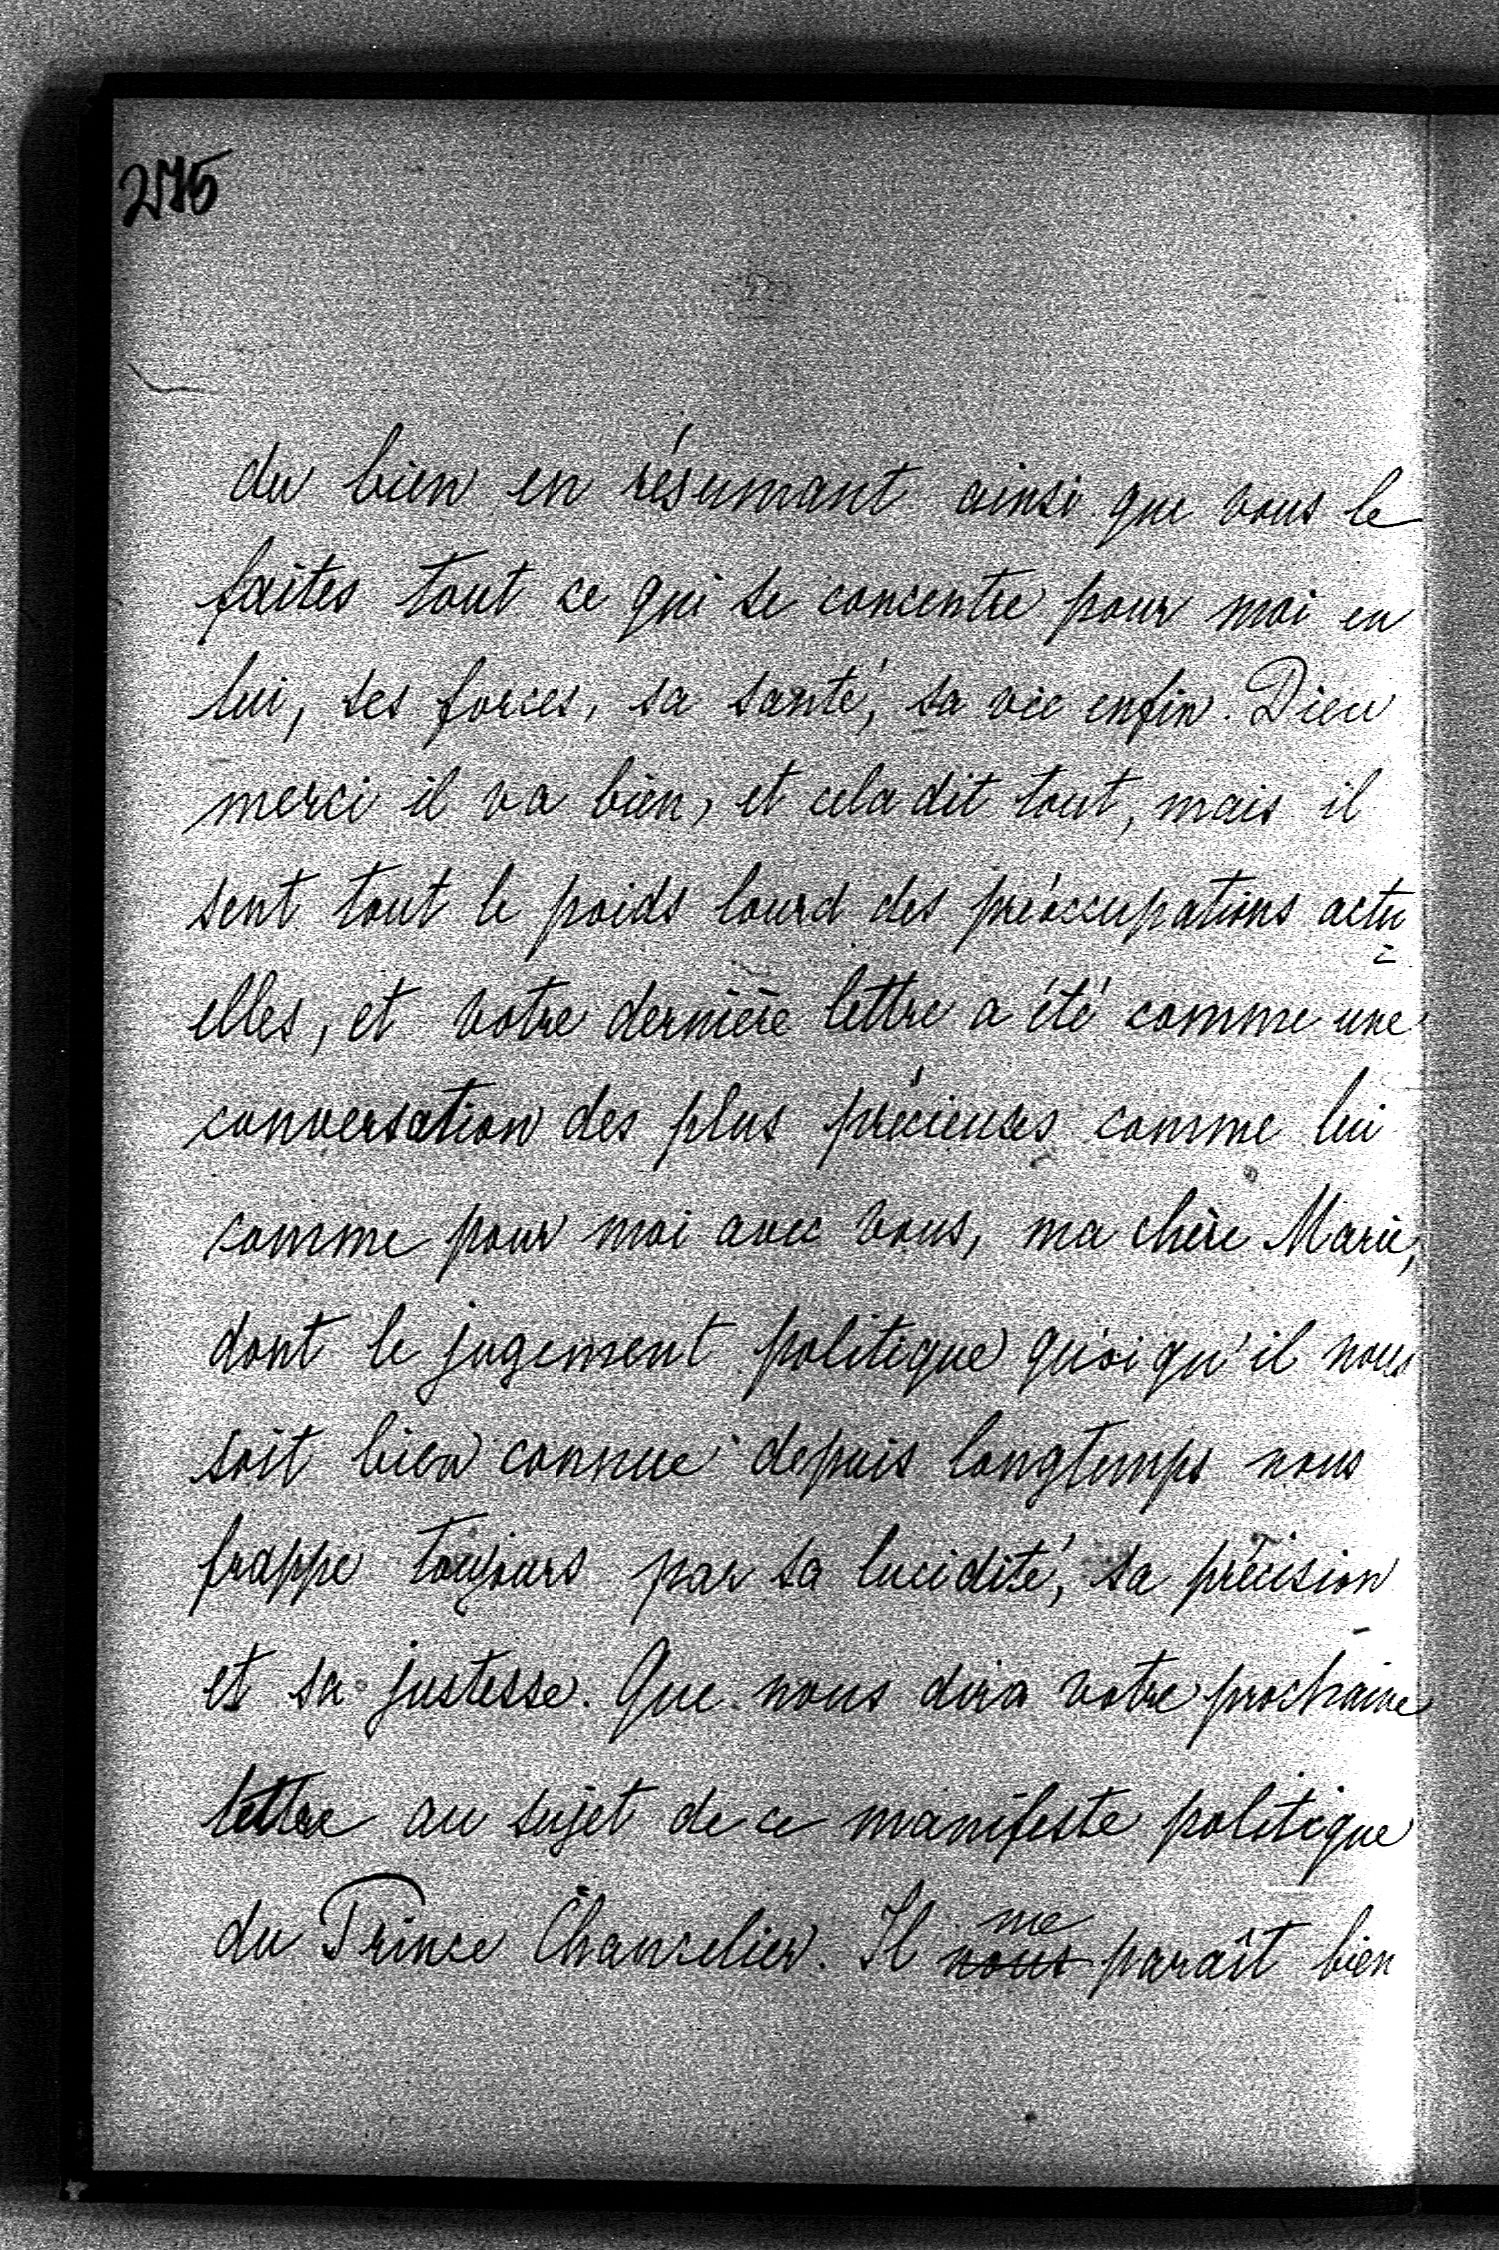 275
du bien en résumant ainsi que vous le
faites tout ce qui se concentre pour moi en
lui, ses forces, sa santé, sa vie enfin. Dieu
merci il va bien, et cela dit tout, mais il
sent tout le poids lourd des préoccupations actu=
elles, et votre dernière lettre a été comme une
conversation des plus précieuses comme lui
comme pour moi avec vous, ma chère Marie,
dont le jugement politique quoiqu'il nous
soit bien connue depuis longtemps nous
frappe toujours par sa lucidité, sa précision
et sa justesse. Que nous dira votre prochaine
lettre au sujet de ce manifeste politique
du Prince Chancelier. Il nous me paraît bien